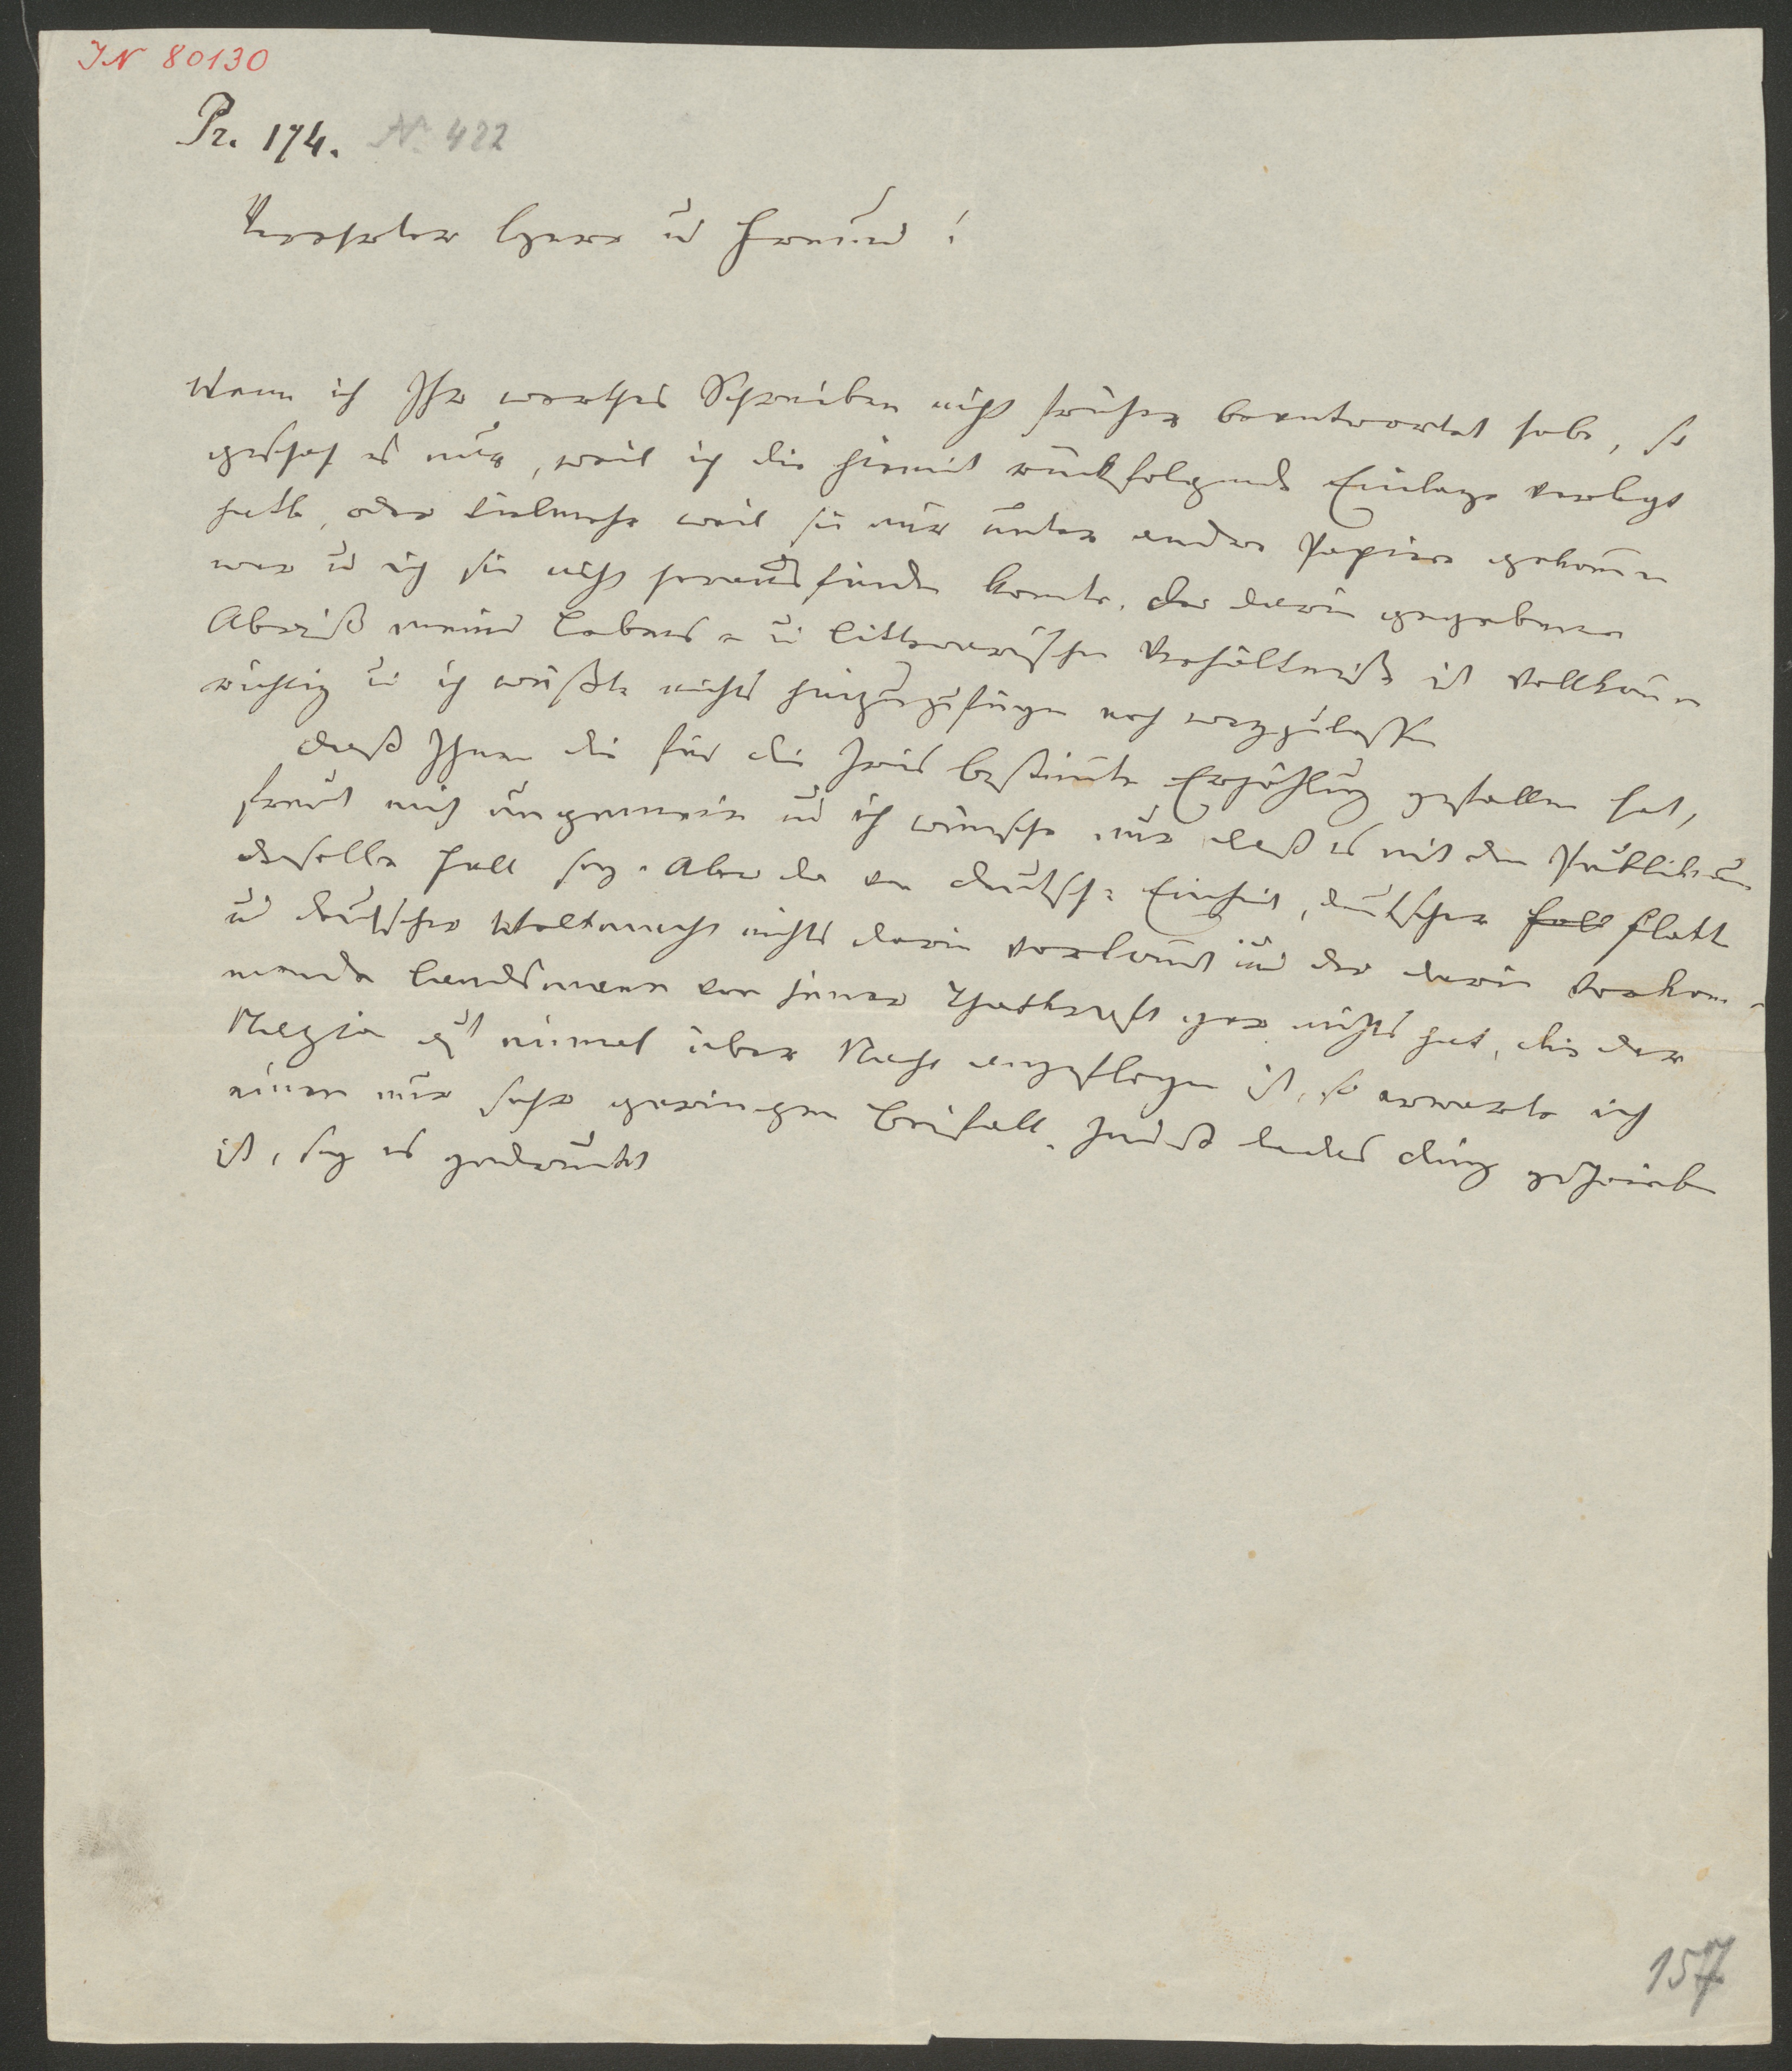 IN 80130
Pr. 174. No 422
Verehrter Herr u Freund!
Wenn ich Ihr werthes Schreiben nicht früher beantwortet habe, so
geschah es nur, weil ich die hiemit rückfolgende Einlage verlegt
hatte, oder vielmehr weil sie mir unter andre Papiere gekommen
war u ich sie nicht herausfinden konnte. Der darin gegebene
Abriß meiner Lebens- u litterarischen Verhältniße ist vollkommen
richtig u ich wüßte nichts hinzuzufügen noch wegzulassen
Daß Ihnen die für die Iris bestimmte Erzählung gefallen hat,
freut mich ungemein und ich wünsche nur daß es mit dem Publikum
derselbe Fall sey. Aber da von deutscher Einheit, deutscher Flotte
und deutscher Weltmacht nichts darin vorkommt und der darin vorkom-
mende Landsmann von jener Thatkraft gar nichts hat, die der
Nazion auf einmal über Nacht angeflogen ist, so erwarte ich
einen nur sehr geringen Beifall. Indeß das Ding geschrieben
ist, sey es gedruckt
157